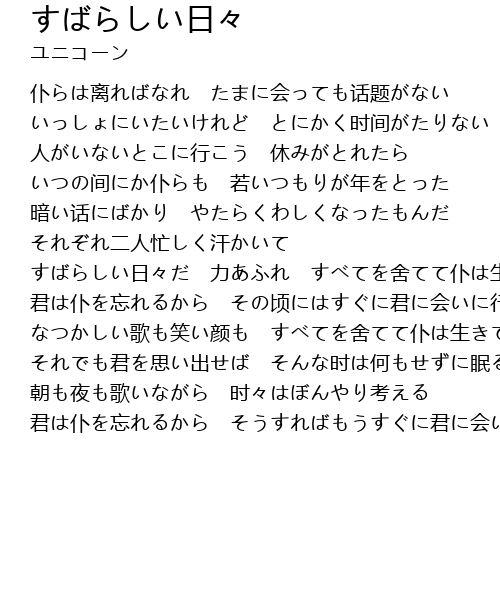 すばらしい日々
ユニコーン
仆らは离ればなれ　たまに会っても话题がない
いっしょにいたいけれど　とにかく时间がたりない
人がいないとこに行こう　休みがとれたら
いつの间にか仆らも　若いつもりが年をとった
暗い话にばかり　やたらくわしくなったもんだ
それぞれ二人忙しく汗かいて
すばらしい日々だ　力あふれ　すべてを舍てて仆は生
君は仆を忘れるから　その顷にはすぐに君に会いに行
なつかしい歌も笑い颜も　すべてを舍てて仆は生きて
それでも君を思い出せば　そんな时は何もせずに眠る
朝も夜も歌いながら　时々はぼんやり考える
君は仆を忘れるから　そうすればもうすぐに君に会い